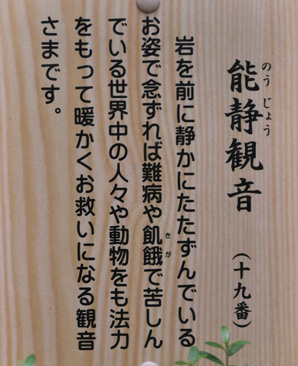 能静観音（十九番）
のうじょう
岩を前に静かにたたずんでいる
お姿で念ずれば難病や飢餓で苦しん
きが
でいる世界中の人々や動物をも法力
をもって暖かくお救いになる観音
さまです。